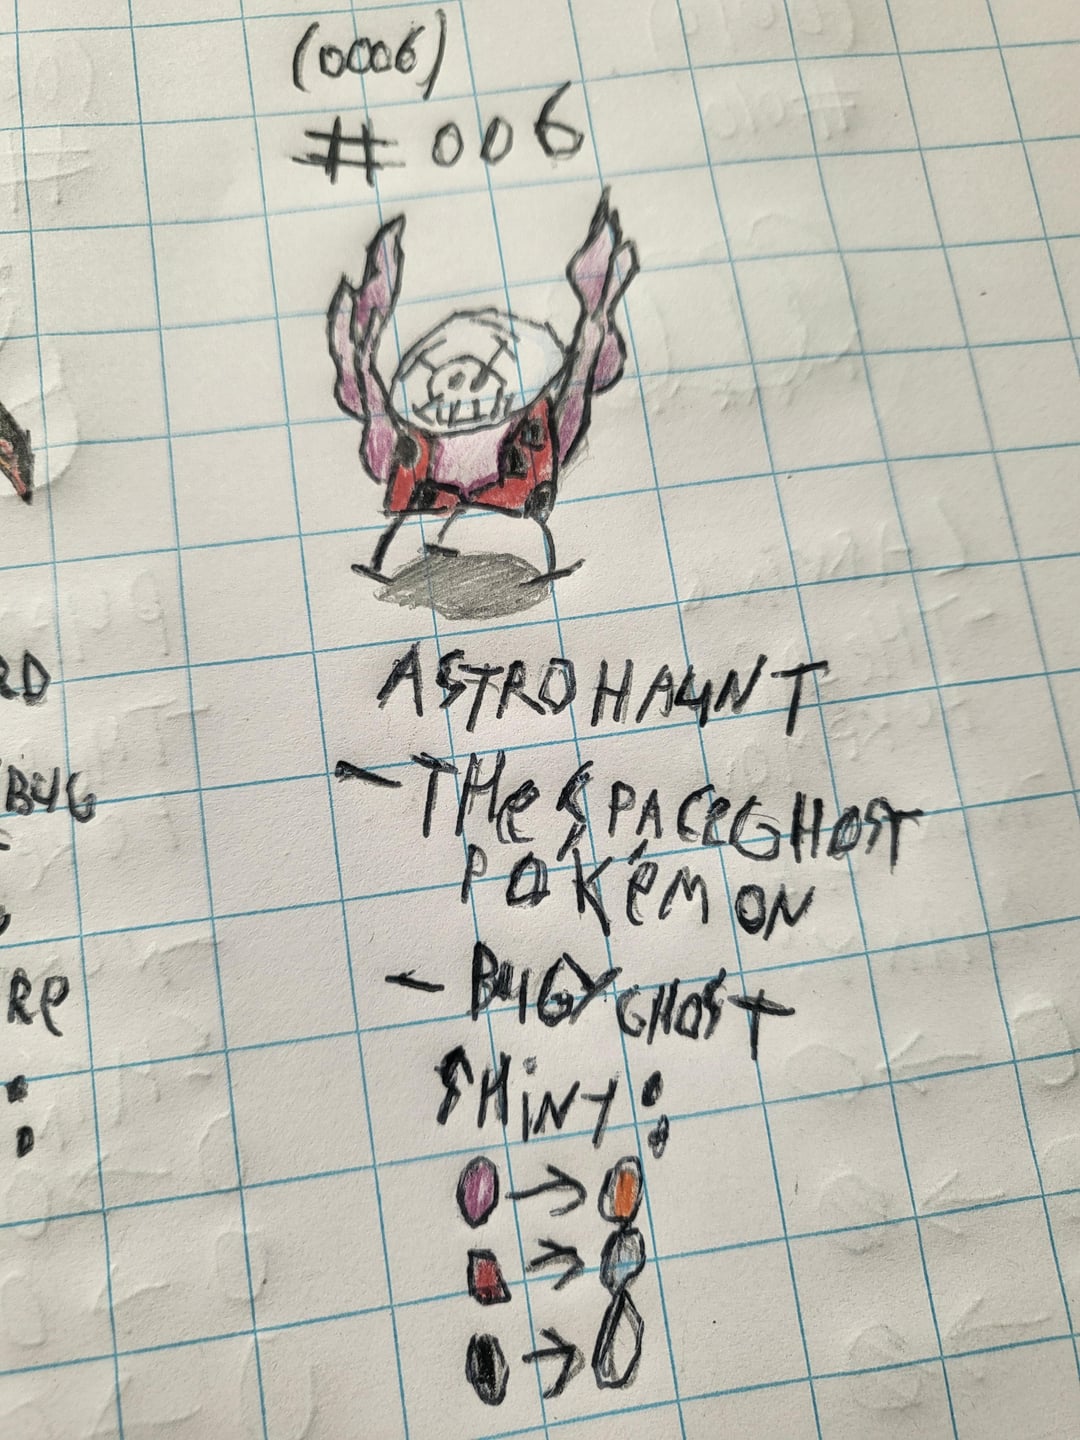 (0006)
# 006
ASTROHAUNT
RD
- THe SPACeGHOST
BUG
POKéMON
Re
- BUG/GHOST
SHiNY: